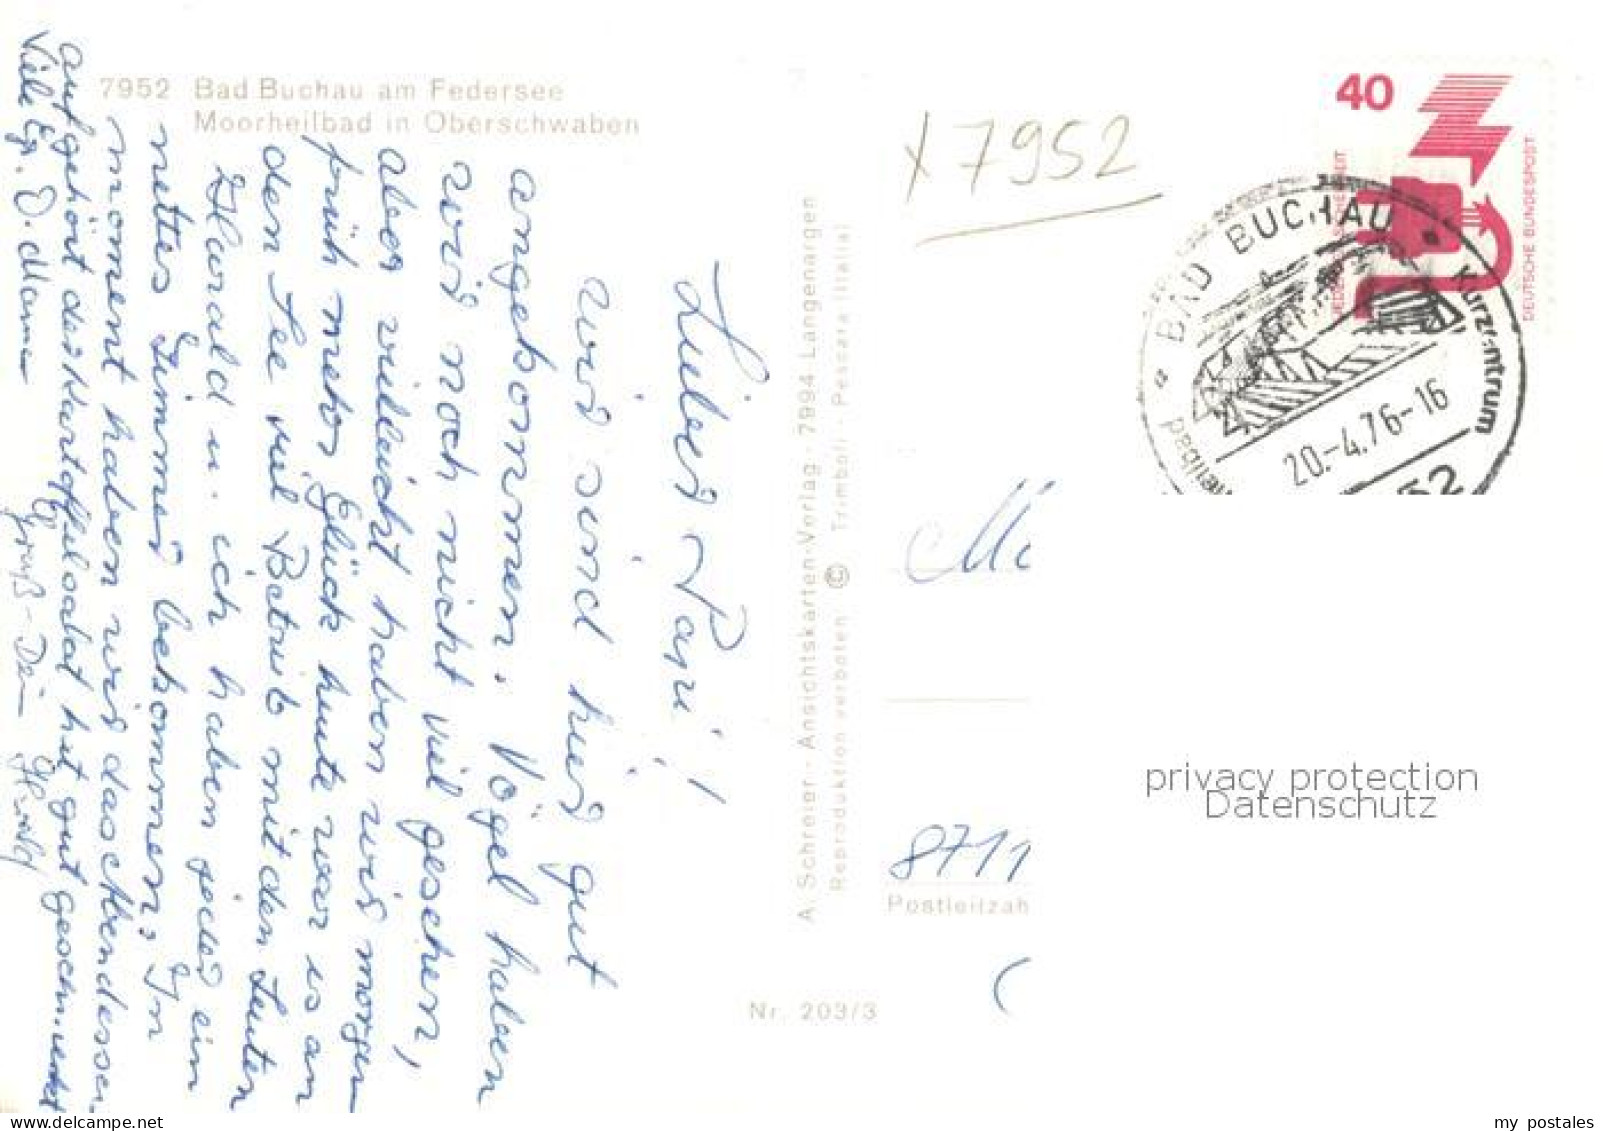 7952 Bad Buchau am Federsee
Moorheilbad in Oberschwaben
Lieber Papi!
Wir sind hier gut
angekommen. Vögel haben
wir noch nicht viel gesehen,
aber vieleicht haben wir morgen
früh mehr Glück heute war es an
den See viel Betrieb mit den Leuten
Harald u. ich haben jeder ein
nettes Zimmer bekommen. In
moment haben wir das Abendessen
aufgehört der Kartoffelsalat hat gut geschmeckt
Viele D. Mama
Gruß - Dein Harald
A. Schreier - Ansichtskarten-Verlag - 7994 Langenargen
Reproduktion verboten © Trimboli - Pescara (Italia)
Nr. 203/3
x 7952
40
JEDERZEIT SICHERHEIT
DEUTSCHE BUNDESPOST
BAD BUCHAU
Kurzentrum
heilbad
20.-4.76-16
52
8711
Postleitzah
privacy protection
Datenschutz
my postales